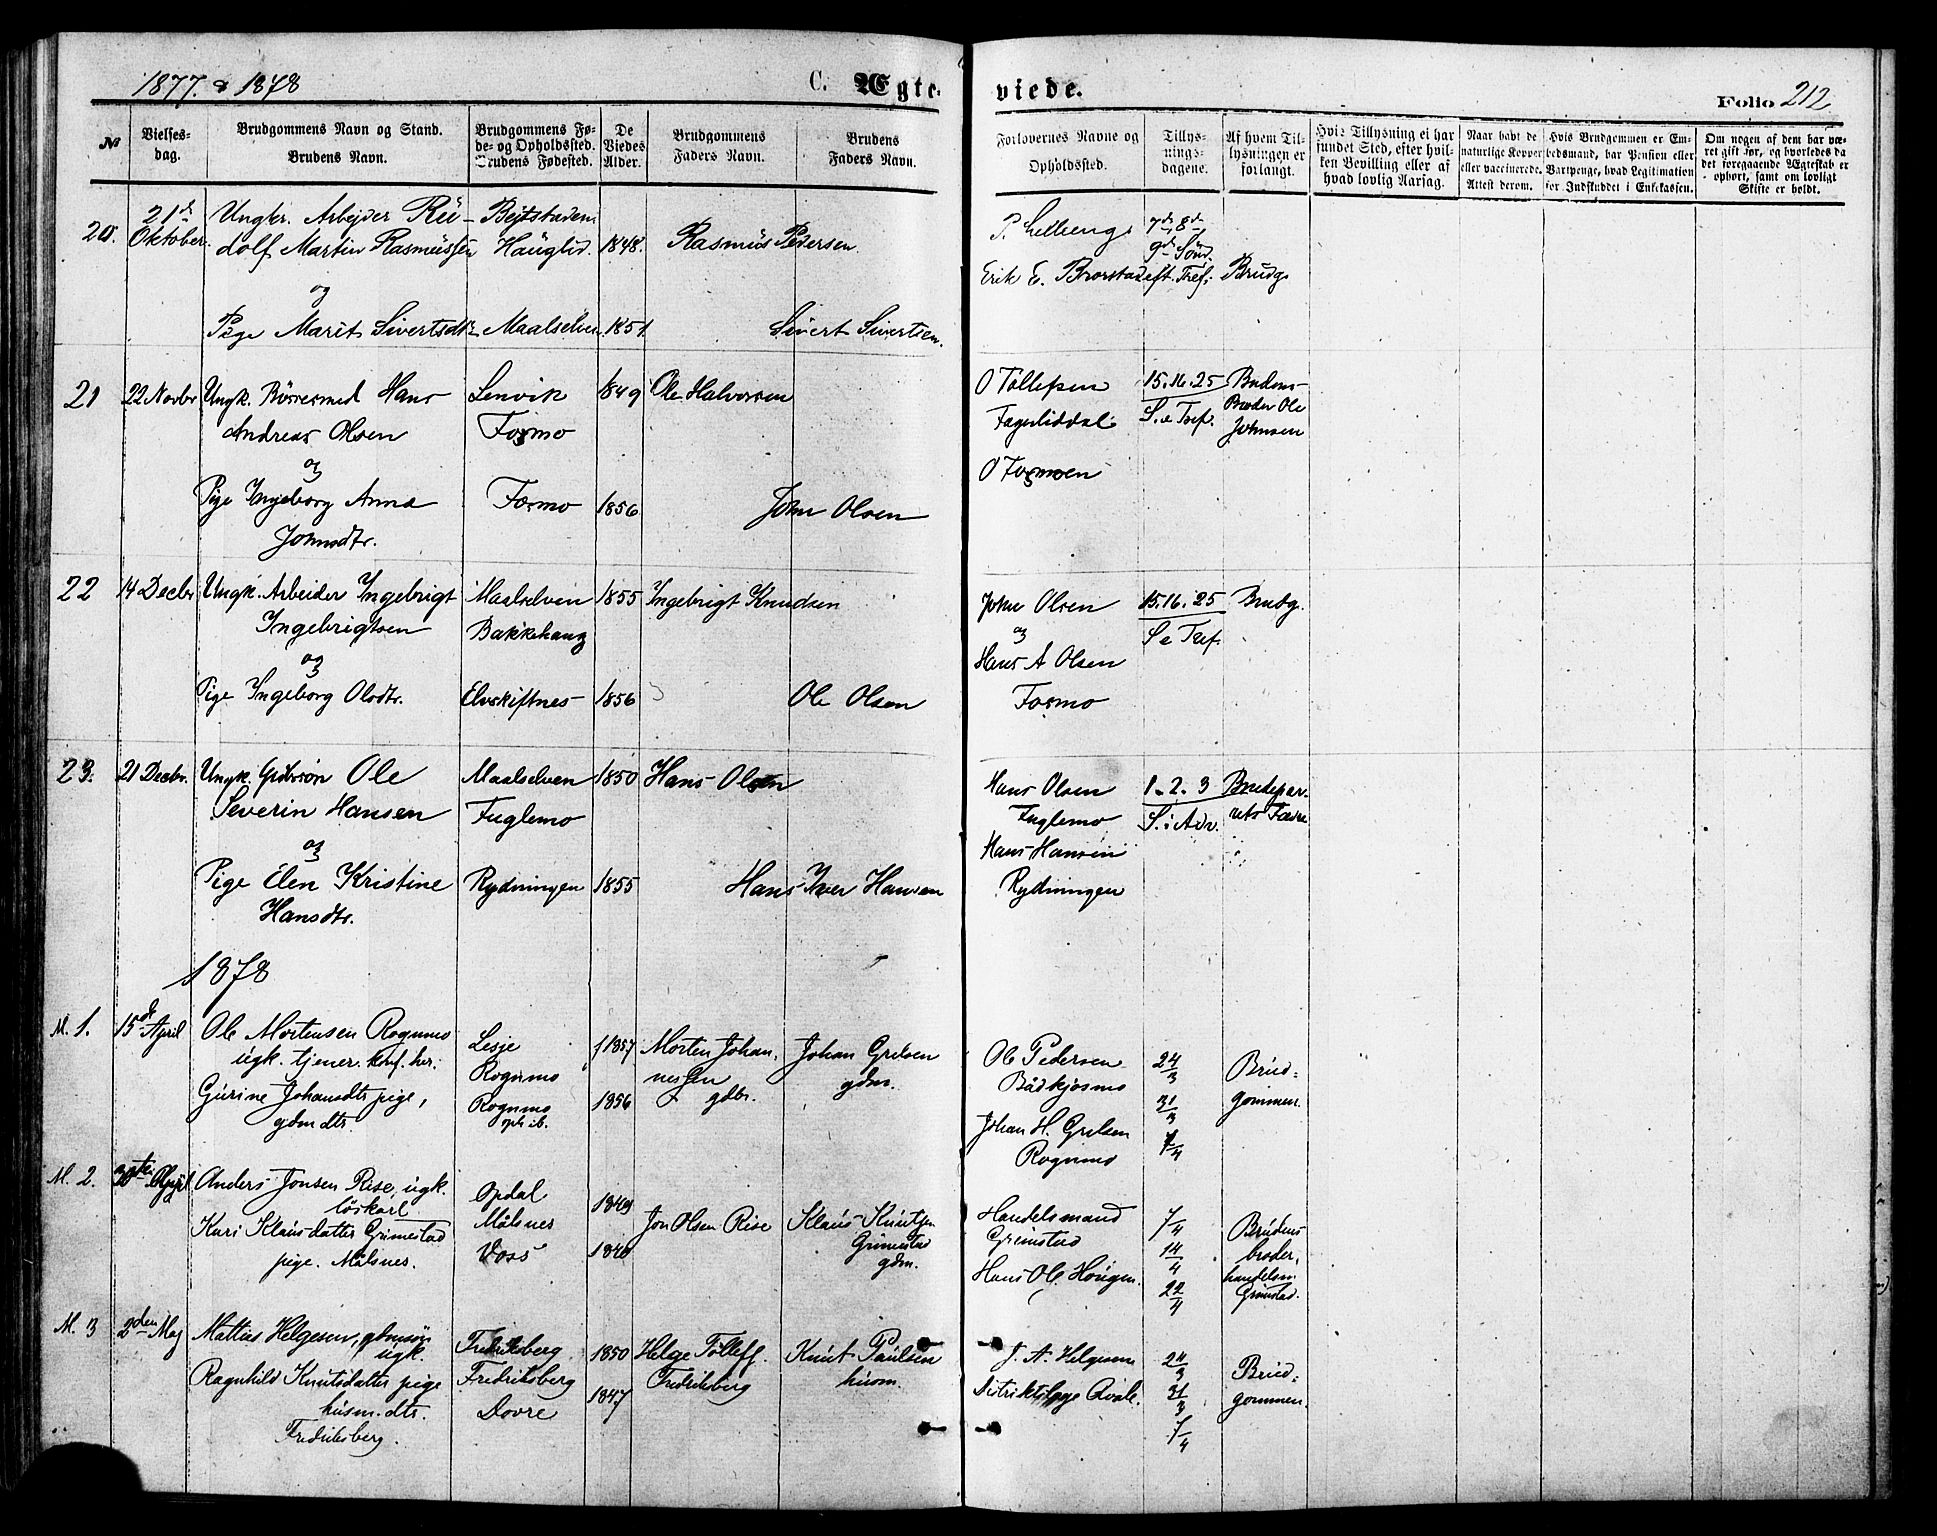 1877. & 1878
C. Ægte-
viede.
Folio 212
№
Vielses-
dag.
Brudgommens Navn og Stand.
Brudens Navn.
Brudgommens Fø-
de- og Opholdssted.
Brudens Fødested.
De
Viedes
Alder.
Brudgommens
Faders Navn.
Brudens
Faders Navn.
Forlovernes Navne og
Opholdssted.
Tillys-
nings-
dagene.
Af hvem Til-
lysningen er
forlangt.
Hvis Tillysning ei har
fundet Sted, efter hvil-
ken Bevilling eller af
hvad lovlig Aarsag.
Naar havt de
naturlige Kopper
eller vaccinerede.
Attest derom.
Hvis Brudgommen er En-
bedsmand, har Pension eller
Vartpenge, hvad Legitimation
for Indskuddet i Enkekassen.
Om nogen af dem har væ-
ret gift før, og hvorledes da
det foregaaende Ægteskab er
ophørt, samt om lovligt
Skifte er holdt.
20.
21de
Oktober.
Ungkr. Arbejder Ru-
dolf Martin Rasmussen
og
Pige Marit Sivertsdtr
Bejtstaden
Hauglid.
Maalselven
1848.
1851
Rasmus Pedersen.
Sivert Sivertsen.
Erik E.
7de 8de
9de Sønd.
eft. Tref.
Brudg
21
22 Novbr
Ungk. Børsesmed Hans
Andreas Olsen
og
Pige Ingeborg Anna
Johnsdtr.
Lenvik
Formo
Formo
1849
1856
Ole Halvorsen
John Olsen
O Tollefsen
Fagerliddal
O Formoen
15. 16. 25
S. e Tref.
Brudens
Broder Ole
Johnsen
22
14 Decbr
Ungk. Arbeider Ingebrigt
Ingebrigtsen
og
Pige Ingeborg Olsdtr.
Maalselven
Bakkehaug
Elvskiftnes
1855
1856
Ingebrigt Knudsen
Ole Olsen
John Olsen
og
Hans A Olsen
Formo
15. 16. 25
S e Tref.
Brudg.
23.
21 Decbr.
Ungk. Ole
Severin Hansen
og
Pige Elen Kristine
Hansdtr.
Maalselven
Fuglemo
Rydningen
1850
1855
Hans Olsen
Hans Iver Hansen
Hans Olsen
Fuglemo
Hans Hansen
Rydningen
1. 2. 3
S. i Adv.
Brudepar-
rets Fædre
1878
N. 1.
15de April
Ole Mortensen Rognmo
ugk. tjener. konf. her.
Gurine Johansdtr pige,
gdm dtr.
Lesje
Rognmo
Rognmo
1857
1856
Morten Johan-
nessen
gdbr.
Johan Grelsen
gdm.
Ole Pedersen
Bådkjosmo
Johan H. Grelsen
Rognmo
24/3
31/3
7/4
Brud-
gommen.
N. 2.
30te April
Anders Jonsen Rise, ugk.
löskarl
Kari Klausdatter Grimestad
pige. Målsnes.
Opdal
Målsnes
Voss
1849
1840
Jon Olsen Rise
Klaus Knutsen
Grimestad
gdm.
Handelsmand
Grimstad
Hans Ol. Hougen.
7/4
14/4
22/4
Brudens
broder,
handelsm.
Grimstad.
N. 3
2den Maj
Mattias Helgesen, gdmsøn
ugk.
Ragnhild Knutsdatter pige
husm. dtr.
Fredriksberg.
Fredriksberg
Fredriksberg
Dovre
1850
1847
Helge Tolleff.
Fredriksberg
Knut Paulsen
husm.
J. A. Helgesen
Distriktslæge Qvale.
24/3
31/3
7/4
Brud-
gommen.